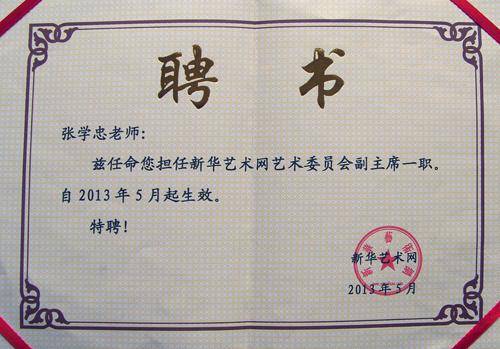 聘书
张学忠老师：
兹任命您担任新华艺术网艺术委员会副主席一职。
自2013年5月起生效。
特聘！
新华艺术网
新华艺术网
2013年5月